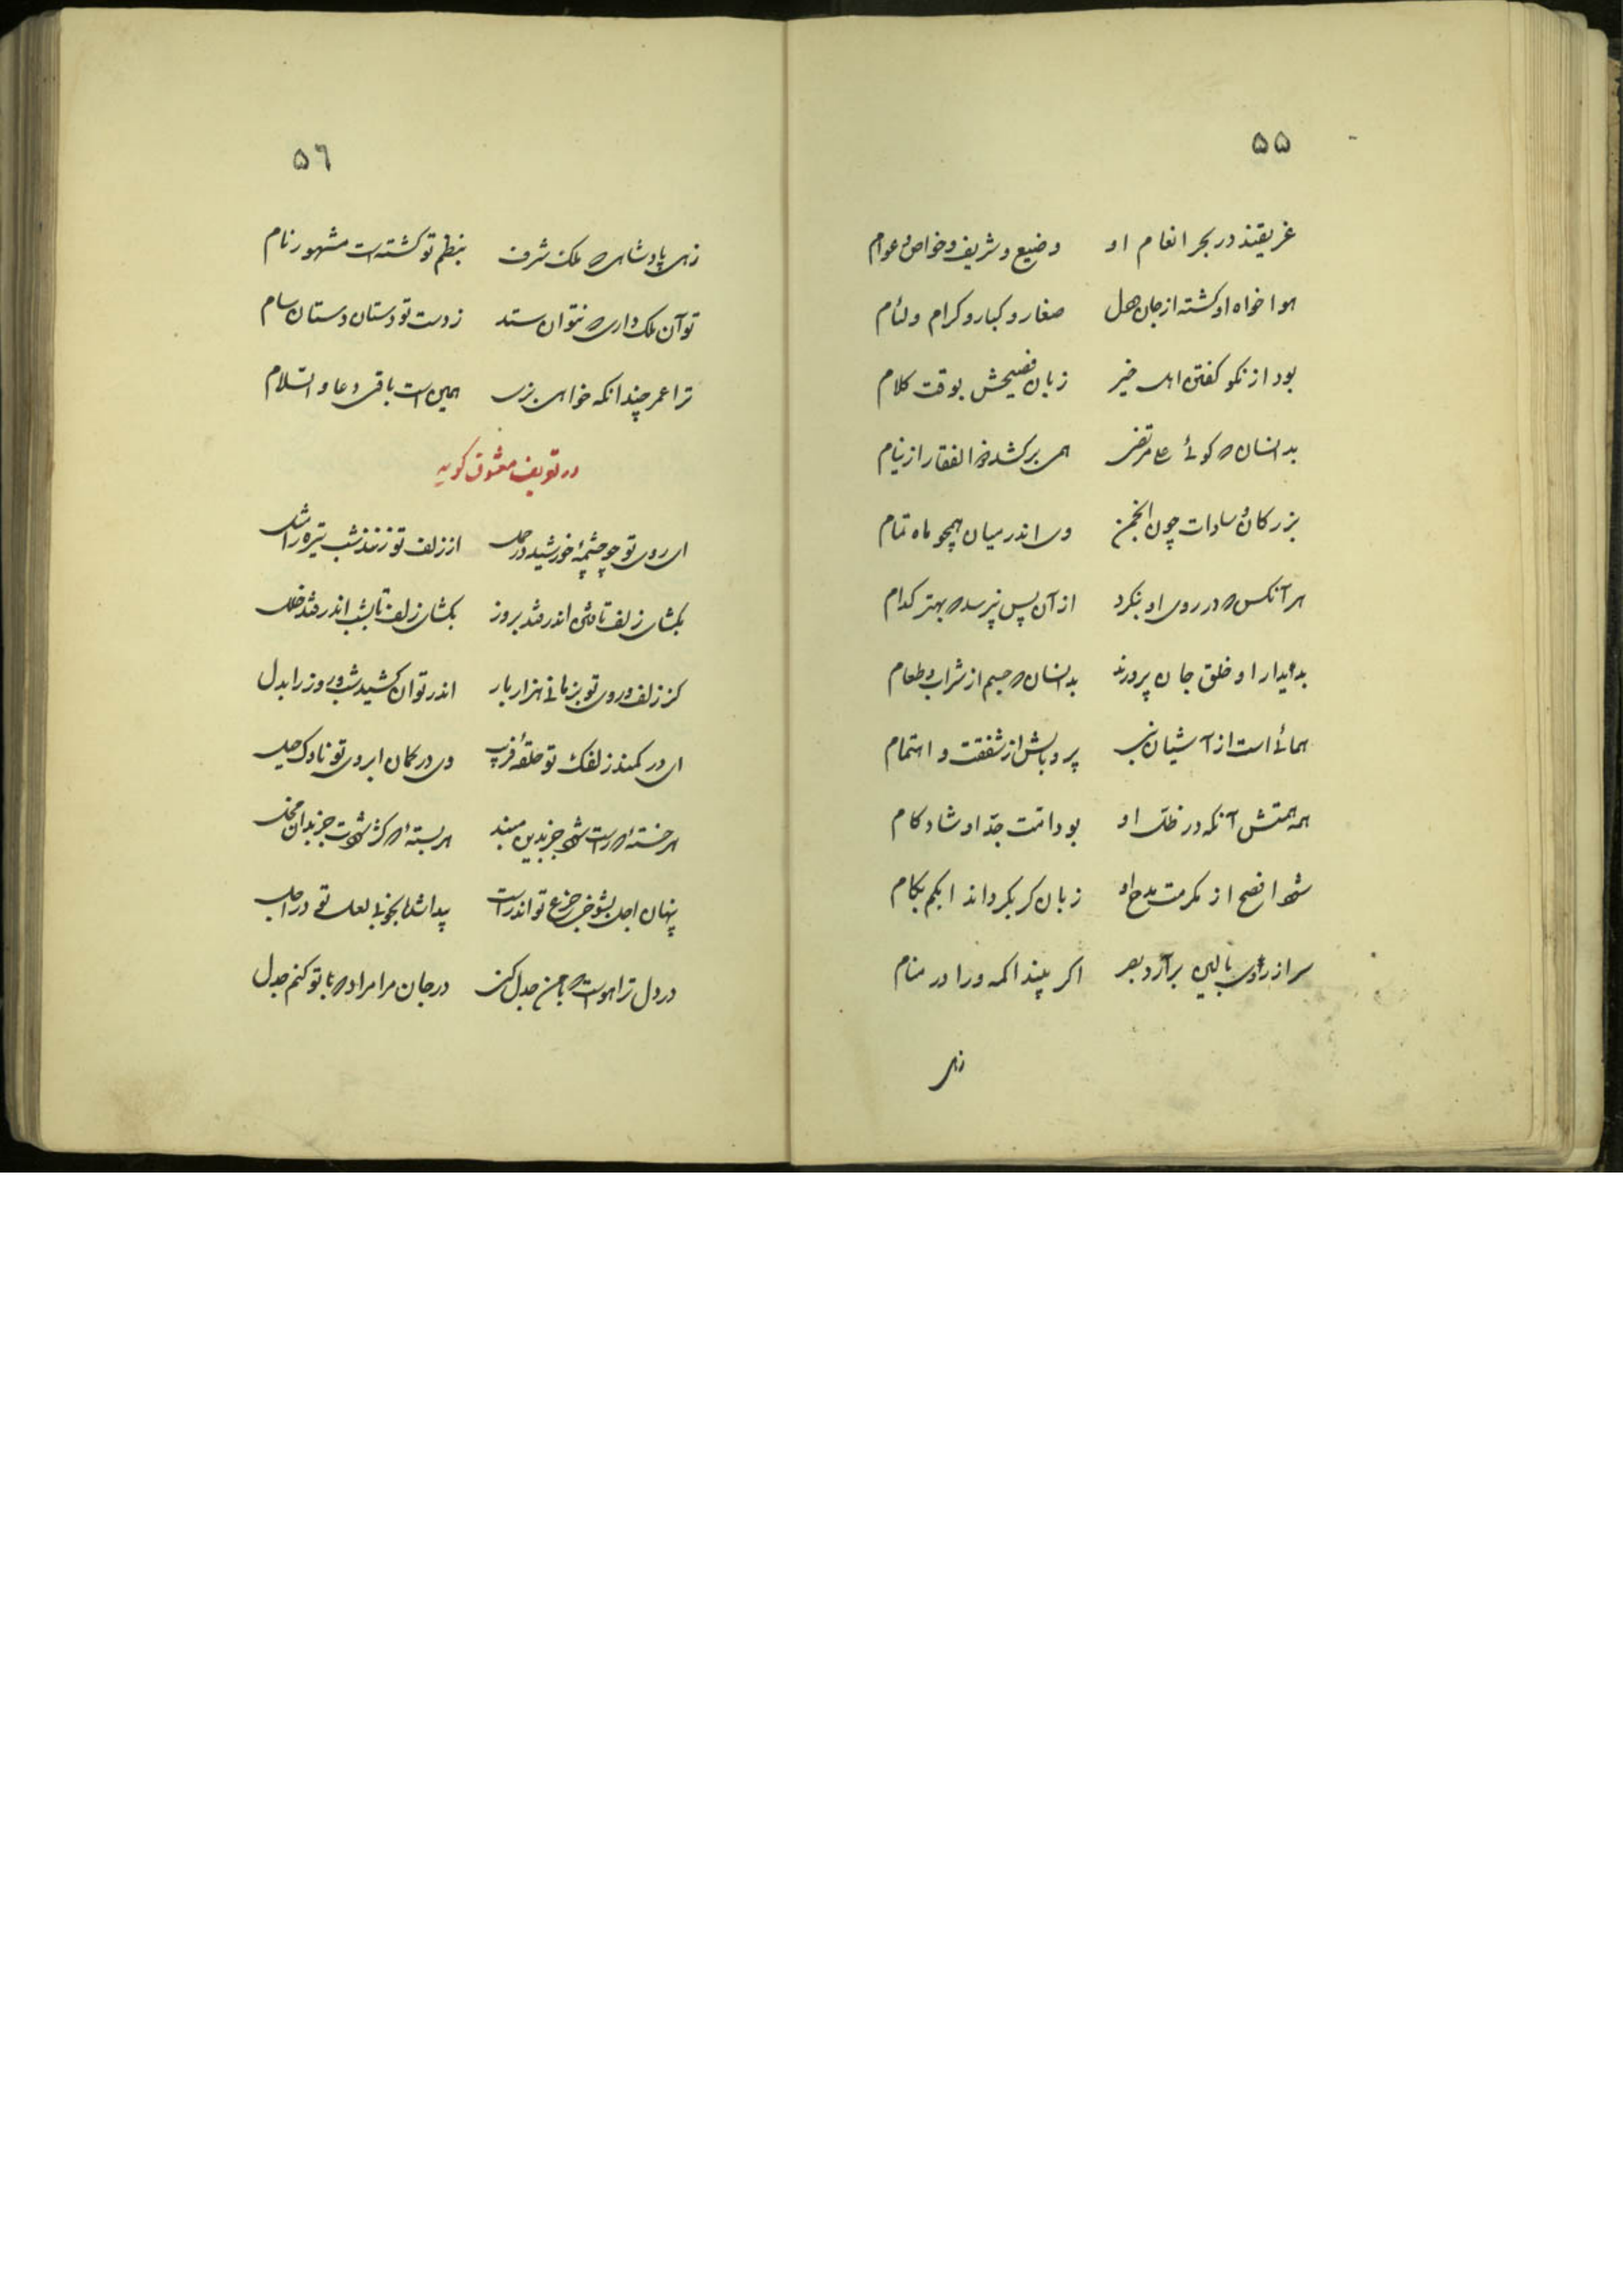 ۵۵
غریقند در بحر انعام او وضیع و شریف و خواص و عوام
هوا خواه او کشته از جان و دل صغار و کبار و کرام و لئام
بود از نکو کفتن اهل خیر زبان فصیحش بوقت کلام
بدانسان که کوئی علی مرتضی همی برکشد ذو الفقار از نیام
بزرکان و سادات چون انجمن وی اندر میان همچو ماه تمام
هر آنکس که در روی او بنکرد از آن پس نپرسد که بهتر کدام
بدیدار او خلق جان پرورند بدانسان که جسم از شراب و طعام
همائی است از آشیان نبی پر و بالش از شفقت و اهتمام
همه همتش آنکه در ظل او بود امت جد او شاد کام
شها افصح از مکرمت مدح او زبان کر بکرداند ابکم بکام
سر از بالین برآرد بصر اکر بیند اکمه ورا در منام
زهی
۵٦
زهی پادشاهی که ملک شرف بنظم تو کشته است مشهور نام
تو آن ملک داری که نتوان ستد ز دست تو دستان دستان سام
ترا عمر چندانکه خواهی بزی همین است باقی دعا و السلام
در تعریف معشوق کوید
ای روی تو چو چشمهٔ خورشید در حمل از زلف تو زنند شب تیره را مثل
بکشای زلف تا شب اندر فتد بروز بکشای زلف تا بشب اندر فتد خلل
کز زلف و روی تو بزمانی هزار بار اندر توان کشید شب و روز را بدل
ای در کمند زلفک تو حلقهٔ فریب وی در کمان ابروی تو ناوک حیل
هر خستهٔ که راست شود جز بدین مبند هر بستهٔ که کژ شودت جز بدان مخل
پنهان اجل بشوخی جزع تو اندر است پیدا شفا بخوبی لعل تو در اجل
در دل ترا هواست که با من جدل کنی در جان مرا مراد که با تو کنم جدل